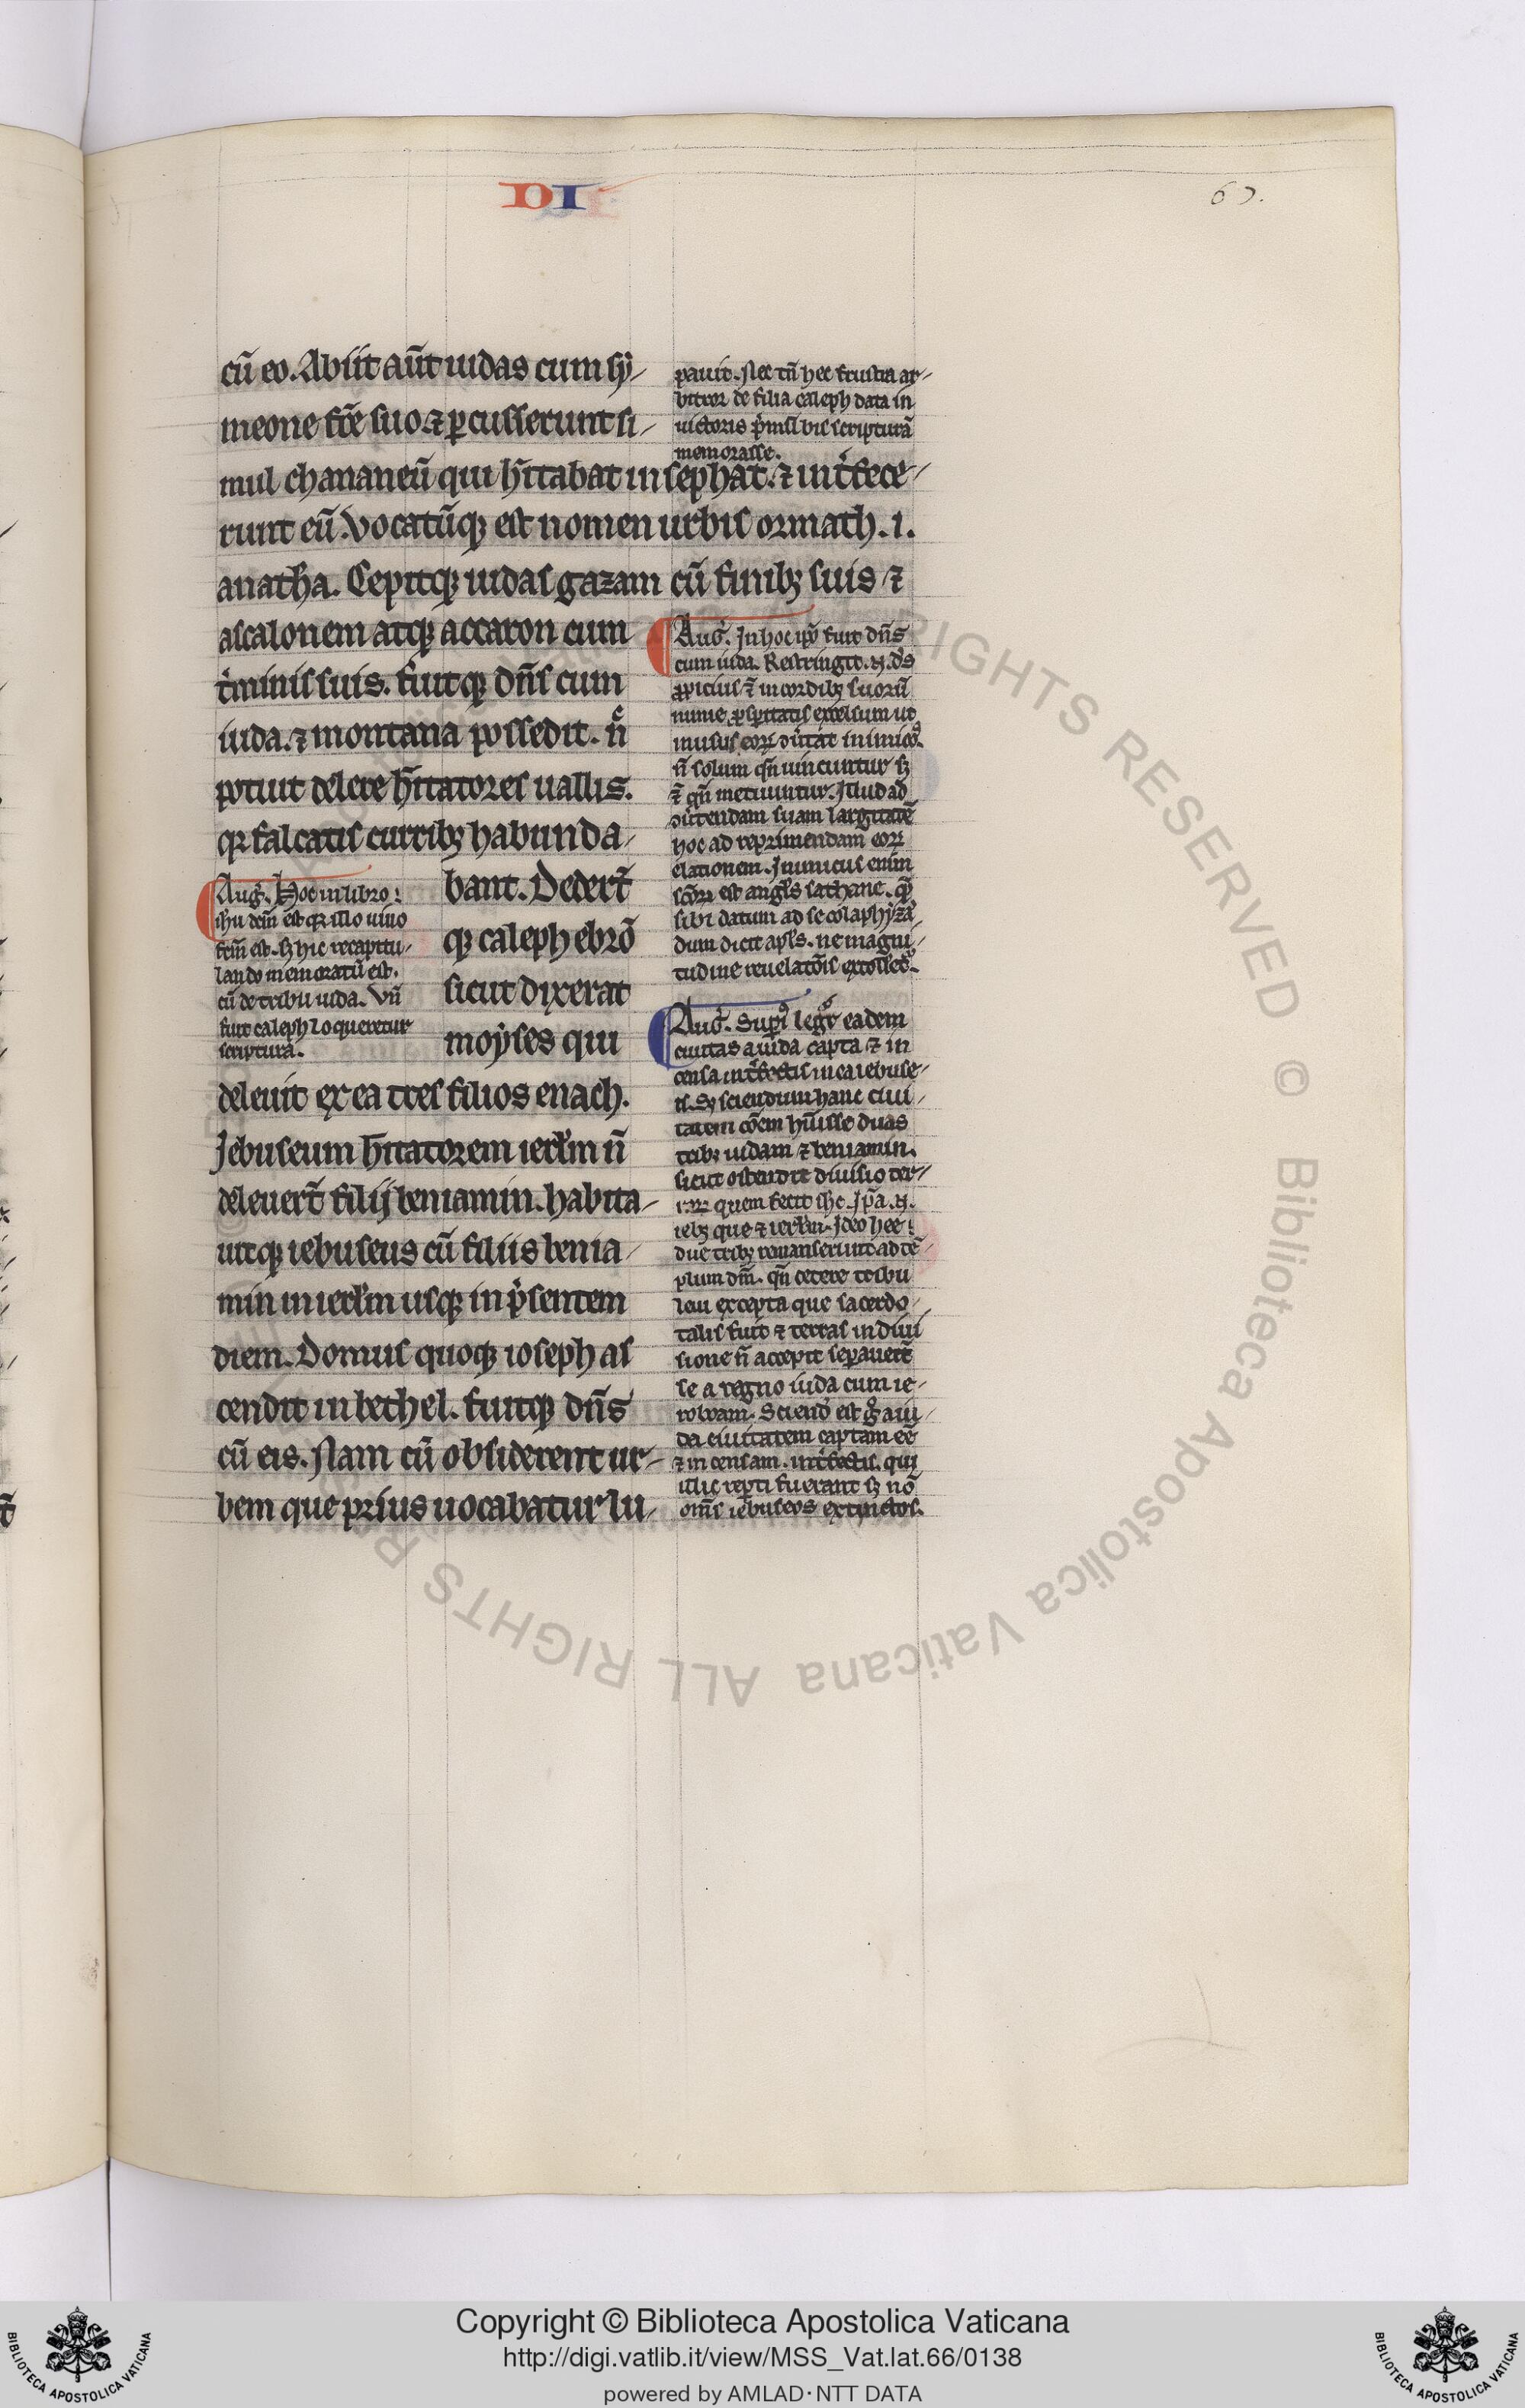 DI
67.
cū eo. Abiit aūt iudas cum sẏ/
meone fr̄e suo ⁊ ꝑcusserunt si/
mul chananeū qui hītabat in sephat. ⁊ int̄fece/
runt eū. Vocatūqꝫ est nomen urbis ormath. i.
anatha. Cepitqꝫ iudas gazam cū finibꝫ suis ⁊
ascalonem atqꝫ accaron cum
t̄minis suis. fuitqꝫ dn̄s cum
iuda. ⁊ montana possedit. n̄
potuit delere hītatores uallis.
qꝛ falcatis curribꝫ habunda/
bant. Dedert̄
qꝫ caleph ebrō
sicut dixerat
moẏses qui
deleuit ex ea tres filios enach.
Jebuseum hītatorem ierlm̄ n̄
deleuert̄ filij beniamin. habita/
uitqꝫ iebuseus cū filiis benia/
min in ierlm̄ usqꝫ in p̄sentem
diem. Domus quoqꝫ ioseph as
cendit in bethel. fuitqꝫ dn̄s
cū eis. Nam cū obsiderent ur/
bem que prius uocabatur lu/
Aug. Hoc in libro
ihu dem̄ est qꝛ illo uiuo
fcm̄ est. sꝫ hic recapitu/
lando memoratū est.
cū de tribu iuda. Vn̄
fuit caleph loqueretur
scriptura.
pauit. Nec tn̄ hec frustra ar/
bitror de filia caleph data in
uictoris p̄miū bis scripturā
memorasse.
Aug. In hoc ip̄o fuit dn̄s
cum iuda. Restringit. n. ds̄
ꝓpicius ⁊ in cordibꝫ suorū
nimie ꝓsperitatis excelsum ut
in usus eoꝝ ut̄tat inimicos.
n̄ solum qn̄ uincuntur sꝫ
⁊ qn̄ metuuntur. Illud ad
oftendam suam largitatē
hoc ad reprimendam eoꝝ
elationem. Inimicus enim
scōꝝ est angl̄s sathane. quē
sibi datum ad se colaphyzā/
dum dicit apl̄s. ne magni/
tudine reuelatōis extolleret̄.
Aug. Superius legitur eadem
ciuitas a iuda capta ⁊ in
censa int̄fectis in ea iebuse/
is. Sꝫ sciendum hanc ciui/
tatem cōem hūisse duas
tribꝫ iudam ⁊ beniamin.
sicut ostendit diuisio ter/
raꝝ quam fecit ihc. Ip̄a. n.
iebꝫ que ⁊ ierlm̄. Ideo hee
due tribꝫ remanserunt ad tē/
plum dn̄i. qn̄ cetere tribu
leui excepta que sacerdo/
talis fuit ⁊ terras in diui
sione n̄ accepit separauert̄
se a regno iuda cum ie/
roboam. Sciend̄ est g̊ a iu/
da ciuitatem captam eē
⁊ incensam. int̄fectis. qui
illic rep̄ti fuerant sꝫ nō
omīs iebuseos extinctos.
Copyright © Biblioteca Apostolica Vaticana
http://digi.vatlib.it/view/MSS_Vat.lat.66/0138
powered by AMLAD·NTT DATA
BIBLIOTECA APOSTOLICA VATICANA
BIBLIOTECA APOSTOLICA VATICANA
© Biblioteca Apostolica Vaticana ALL RIGHTS RESERVED